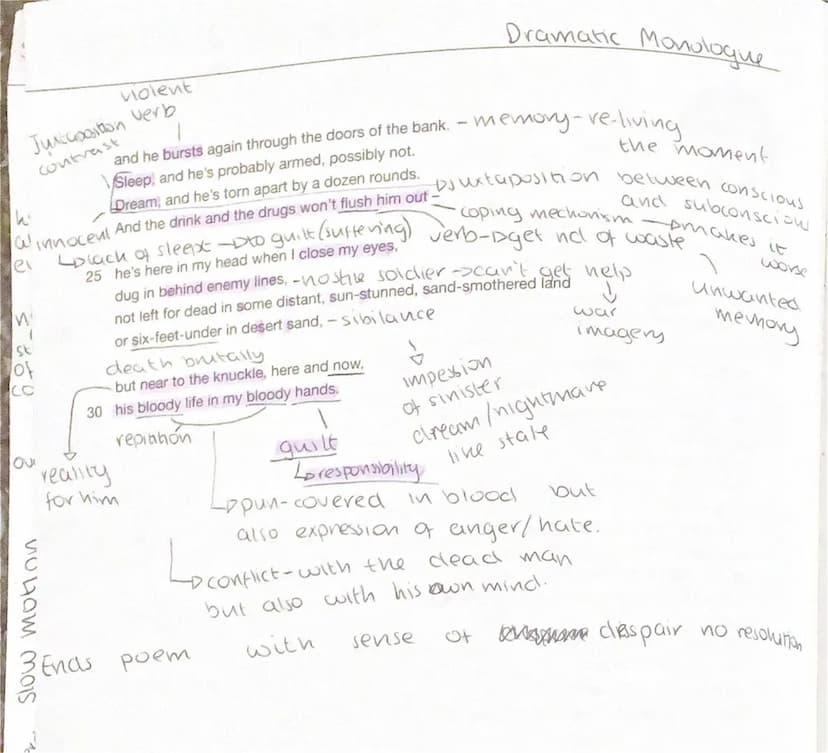 Dramatic Monologue
violent
verb
Juxtaposition
contrast
and he bursts again through the doors of the bank. - memory - re-living
the moment
Sleep, and he's probably armed, possibly not.
Dream, and he's torn apart by a dozen rounds.
Juxtaposition between conscious
and subconscious
innocent
And the drink and the drugs won't flush him out -
coping mechanism → makes it
worse
lack of sleep → to guilt (suffering)
verb → get rid of waste
unwanted
memory
25 he's here in my head when I close my eyes,
dug in behind enemy lines, - hostile soldier → can't get help
not left for dead in some distant, sun-stunned, sand-smothered land
war
imagery
or six-feet-under in desert sand, - sibilance
impession
of sinister
dream/nightmare
like state
death brutally
but near to the knuckle, here and now,
30 his bloody life in my bloody hands.
repition
guilt
↳ responsibility
reality
for him
↳ pun - covered in blood but
also expression of anger/hate.
↳ conflict - with the dead man
but also with his own mind.
Ends poem with sense of despair no resolution
slow motion